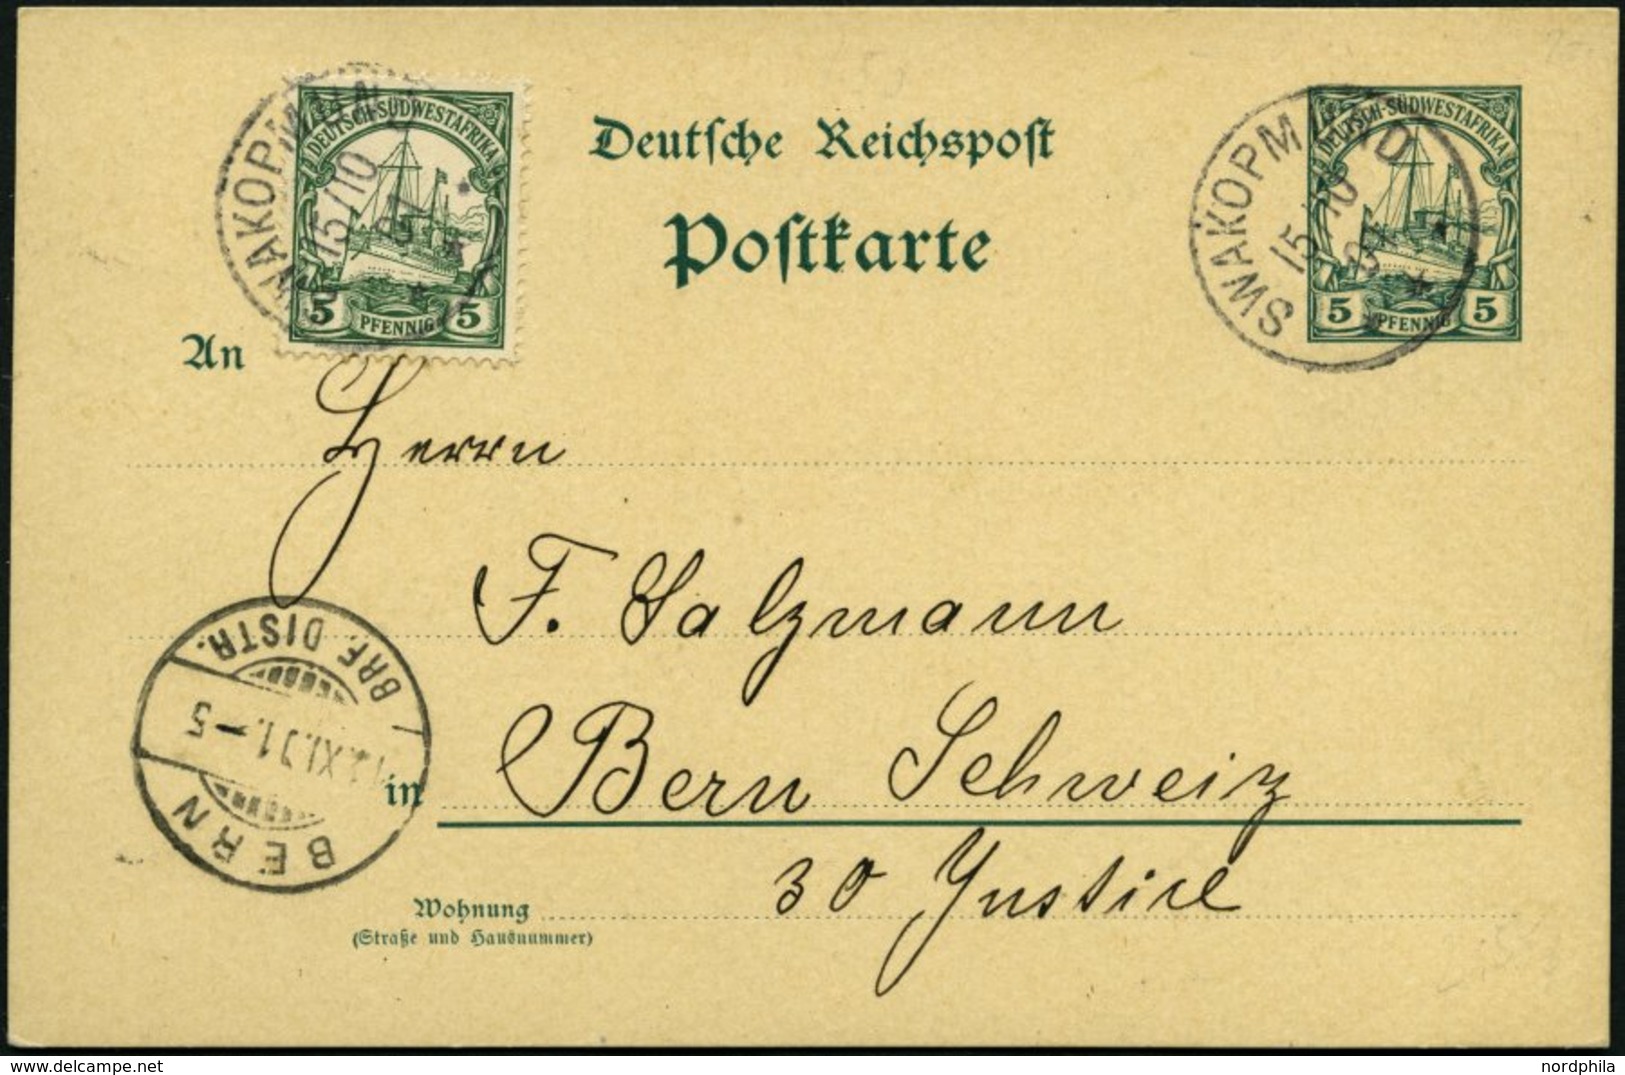 DEUTSCH-SÜDWESTAFRIKA
5 PFENNIG 5
SWAKOPMUND
15/10
01
Deutſche Reichspoſt
Poſtkarte
DEUTSCH-SÜDWESTAFRIKA
5 PFENNIG 5
SWAKOPMUND
15/10
01
An
Herrn
F. Salzmann
BERN
XI.01.-5
BRF. DISTR.
in
Bern Schweiz
30 Justice
Wohnung
(Straße und Hausnummer)
nordphila